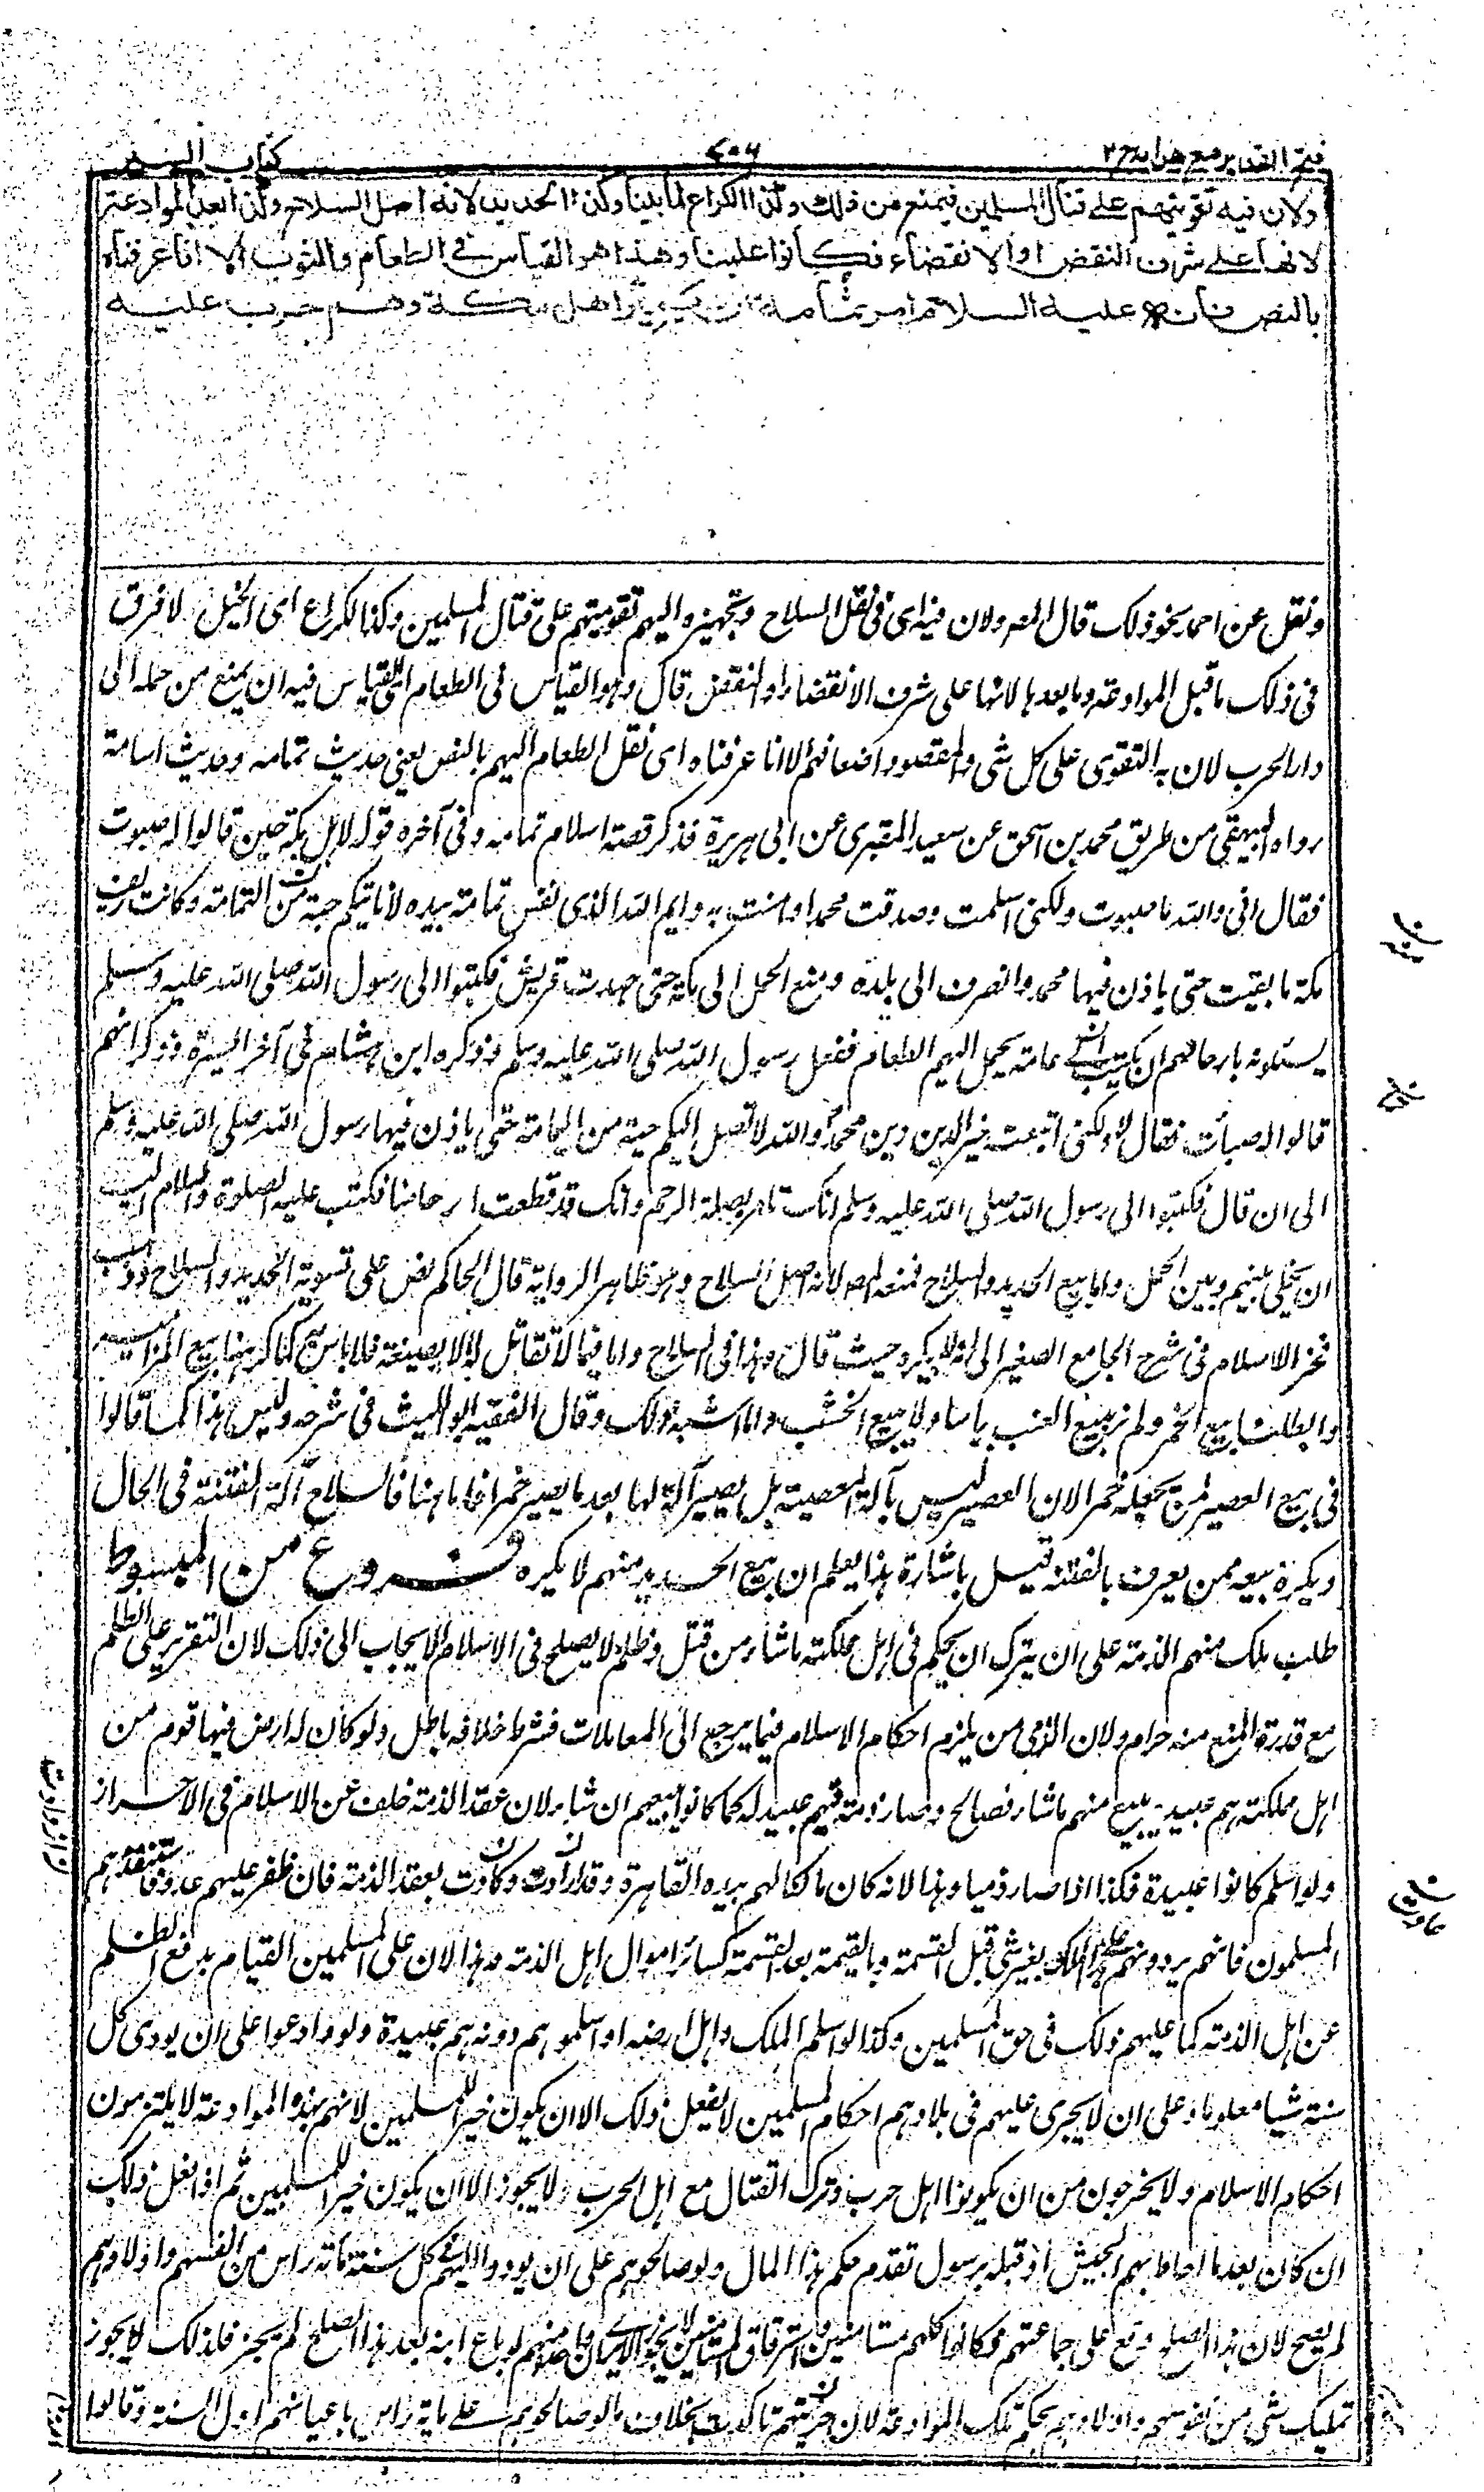 فتح القدير مع هدايه ج٢
٧٠٤
كتاب السير
ولان فيه تقويتهم على قتال المسلمين فيمنع من ذلك وكذا الكراع لما بينا وكذا الحديد لانه اصل السلاح وكذا بعد الموادعة
لانها على شرف النقض او الانقضاء فكانوا علينا وهذا هو القياس في الطعام والثوب الا انا عرفناه
بالنص فانه عليه السلام امر ثمامة ان يمير اهل مكة وهم حرب عليه
ونقل عن احمد نحو ذلك قال المصر ولان فيه اى فى نقل السلاح وتجهيزه اليهم تقويتهم على قتال المسلمين وكذا الكراع اى الخيل لا فرق
فى ذلك ما قبل الموادعة وما بعدها لانها على شرف الانقضاء او النقض قال وهو القياس فى الطعام اى القياس فيه ان يمنع من حمله الى
دار الحرب لان به التقوى على كل شى والمقصود اضعافهم الا انا عرفناه اى نقل الطعام اليهم بالنص يعنى حديث ثمامه وحديث اسامة
رواه البيهقى من طريق محمد بن اسحق عن سعيد المقبرى عن ابى هريرة فذكر قصة اسلام ثمامه وفى آخره قوله لاهل مكة حين قالوا له صبوت
فقال انى والله ما صبوت ولكنى اسلمت وصدقت محمدا وامنت به وايم الله الذى نفس ثمامة بيده لا تاتيكم حبة من اليمامة وكانت ريف
مكة ما بقيت حتى ياذن فيها محمد وانصرف الى بلده ومنع الحمل الى مكة حتى جهدت قريش فكتبوا الى رسول الله صلى الله عليه وسلم
يسئلونه بارحامهم ان يكتب الى ثمامة يحمل اليهم الطعام ففعل رسول الله صلى الله عليه وسلم وذكره ابن هشام فى آخر السيرة وذكر انهم
قالوا له صبأت فقال لا ولكنى اتبعت خير الدين دين محمد والله لا تصل اليكم حبة من اليمامة حتى ياذن فيها رسول الله صلى الله عليه وسلم
الى ان قال فكتبوا الى رسول الله صلى الله عليه وسلم انك تامر بصلة الرحم وانك قد قطعت ارحامنا فكتب عليه الصلوة والسلام اليه
ان يخلى بينهم وبين الحمل واما بيع الحديد والسلاح فمنعه المصر لانه اصل السلاح وهو ظاهر الرواية قال الحاكم نص على تسوية الحديد والسلاح وذهب
فخر الاسلام فى شرح الجامع الصغير الى انه لا يكره حيث قال وهذا فى السلاح واما فيما لا تقاتل به الا بصنعة فلا باس به كما كرهنا بيع المزامير
وابطلنا بيع الخمر ولم نر ببيع العنب باسا ولا ببيع الخشب وما اشبه ذلك وقال الفقيه ابو الليث فى شرحه وليس هذا كما قالوا
فى بيع العصير لمن يجعله خمرا لان العصير ليس بآلة المعصية بل يصير آلة لها بعد ما يصير خمرا فاما هنا فالسلاح آلة الفتنة فى الحال
ويكره بيعه ممن يعرف بالفتنة قيل باشارة هذا يعلم ان بيع الحديد منهم لا يكره فروع من المبسوط
طلب ملك منهم الذمة على ان يترك ان يحكم فى اهل مملكته ما شاء من قتل وظلم لا يصلح فى الاسلام لا يجاب الى ذلك لان التقرير على الظلم
مع قدرة المنع منه حرام ولان الذمى من يلتزم احكام الاسلام فيما يرجع الى المعاملات فشرط خلافه باطل ولو كان له ارض فيها قوم من
اهل مملكته هم عبيده يبيع منهم ما شاء فصالح وصار ذمة فهم عبيد له كما كانوا يبيعهم ان شاء لان عقد الذمة خلف عن الاسلام فى الاحراز
ولو اسلم كانوا عبيده فكذا اذا صار ذميا وهذا لانه كان مالكا لهم بيده القاهرة وقد ازدادت وكادة بعقد الذمة فان ظفر عليهم عدو فاستنقذهم
المسلمون فانهم يردونهم على هذا الملك بغير شى قبل القسمة وبالقيمة بعد القسمة كسائر اموال اهل الذمة وهذا لان على المسلمين القيام بدفع الظلم
عن اهل الذمة كما عليهم ذلك فى حق المسلمين وكذا لو اسلم الملك واهل ارضه او اسلموا هم دونه هم عبيده ولو وادعوا على ان يودى كل
سنة شيا معلوما وعلى ان لا يجرى عليهم فى بلادهم احكام المسلمين لا يفعل ذلك الا ان يكون خيرا للمسلمين لانهم بهذه الموادعة لا يلتزمون
احكام الاسلام ولا يخرجون من ان يكونوا اهل حرب وترك القتال مع اهل الحرب لا يجوز الا ان يكون خيرا للمسلمين ثم اذا فعل ذلك
ان كان بعد ما احاط بهم الجيش او قبله برسول تقدم حكم هذا المال ولو صالحوهم على ان يودوا اليهم كل سنة مائة راس من انفسهم واولادهم
لم يصح لان هذا الصلح وقع على جماعتهم فكانوا كلهم مستامنين واسترقاق المستامنين لا يجوز الا يرى ان واحدا منهم لو باع ابنه بعد هذا الصلح لم يجز فلذلك لا يجوز
تمليك شى من نفوسهم واولادهم بحكم تلك الموادعة لان حريتهم تاكدت بخلاف ما لو صالحوهم على ماية راس باعيانهم اول السنة وقالوا